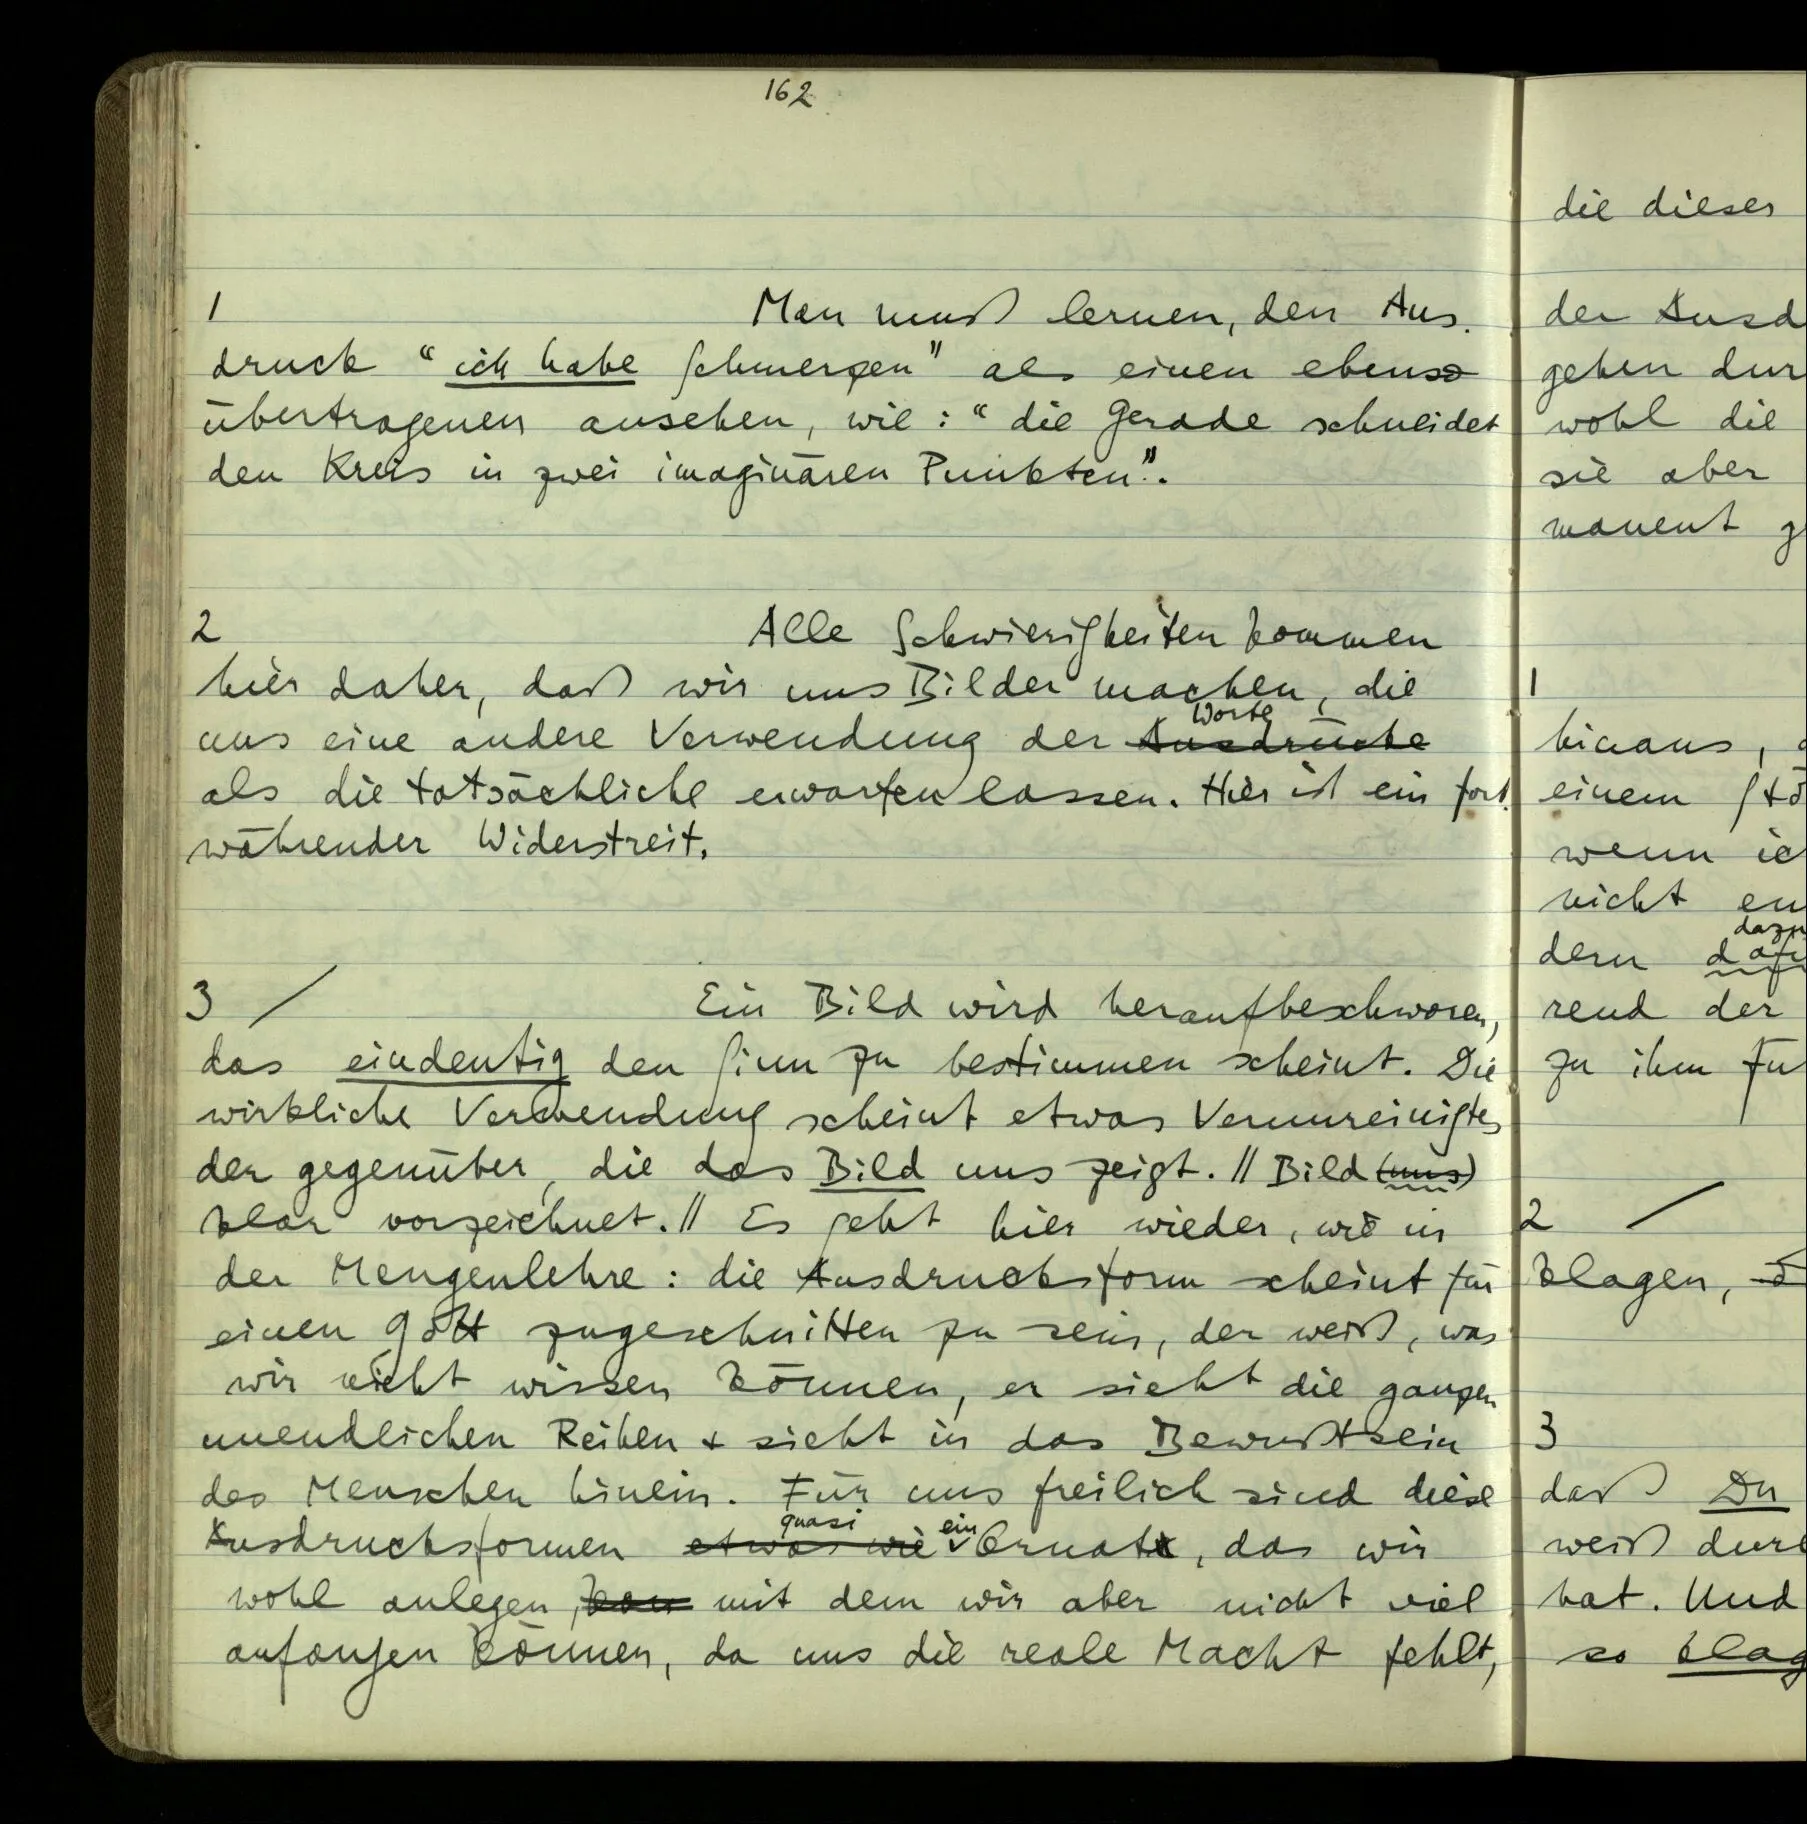 162
1 Man muß lernen, den Aus-
druck “ich habe Schmerzen” als einen ebenso
übertragenen ansehen, wie: “die Gerade schneidet
den Kreis in zwei imaginären Punkten”.
2 Alle Schwierigkeiten kommen
hier daher, daß wir uns Bilder machen, die
Worte
uns eine andere Verwendung der Ausdrücke
als die tatsächliche erwarten lassen. Hier ist ein fort-
währender Widerstreit.
3 / Ein Bild wird heraufbeschworen,
das eindeutig den Sinn zu bestimmen scheint. Die
wirkliche Verwendung scheint etwas Verunreinigtes
der gegenüber, die das Bild uns zeigt. || Bild (uns)
klar vorzeichnet. || Es geht hier wieder, wie in
der Mengenlehre: die Ausdrucksform scheint für
einen Gott zugeschnitten zu sein, der weiß, was
wir nicht wissen können, er sieht die ganzen
unendlichen Reihen & sieht in das Bewußtsein
des Menschen hinein. Für uns freilich sind diese
quasi ein
Ausdrucksformen etwas wie Ornat, das wir
wohl anlegen, mit dem wir aber nicht viel
anfangen können, da uns die reale Macht fehlt,
die dieser
der Ausd
gehen dur
wohl die
sie aber
manent g
1
hinaus,
einem Stö
wenn ic
nicht en
dazu
dern dafü
rend der
zu ihm Fü
2 /
klagen,
3
daß Du
weiß durc
hat. Und
so klag